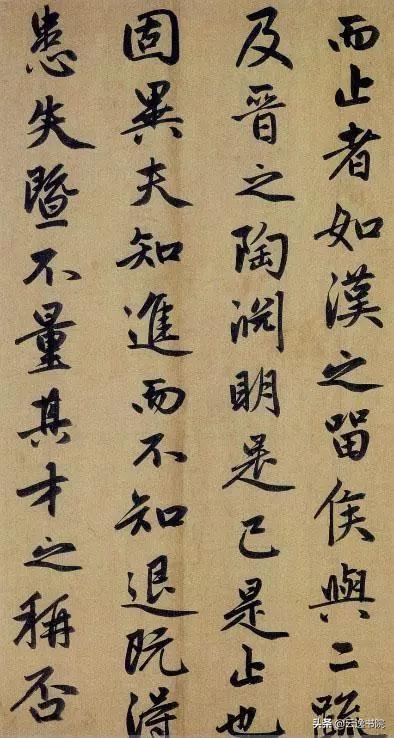 而止者如漢之留侯與二疏
及晉之陶淵明是已是止也
固異夫知進而不知退既得
患失暨不量其才之稱否
头条 @云逸书院